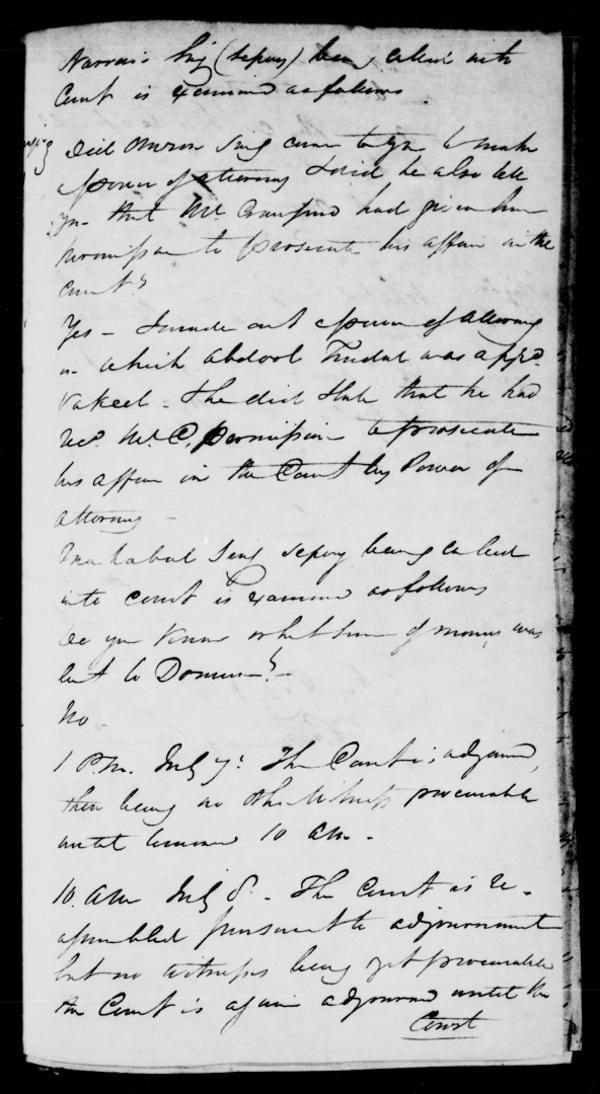 Sing (Sepoy) being called into
Court is Examined as follows
Did Sing come to you to make
a power of attorney & did he also tell
you that Mr. Crawford had given him
permission to prosecute his affair in the
Court?
Yes - I made out a power of Attorney
in which Abdool was app.d
Vakeel - & he did State that he had
rec.d Mr. C. permission to prosecute
his affair in the Court by Power of
attorney -
Sing Sepoy being called
into Court is Examined as follows
Do you know what sum of money was
lent to ?
No -
1 P.M. July 7. The Court is adjourned,
there being no other Witness procurable
until tomorrow 10 am -
10. am July 8. - The Court is re-
assembled pursuant to adjournment
but no witnesses being yet procurable
the Court is again adjourned until the
Court